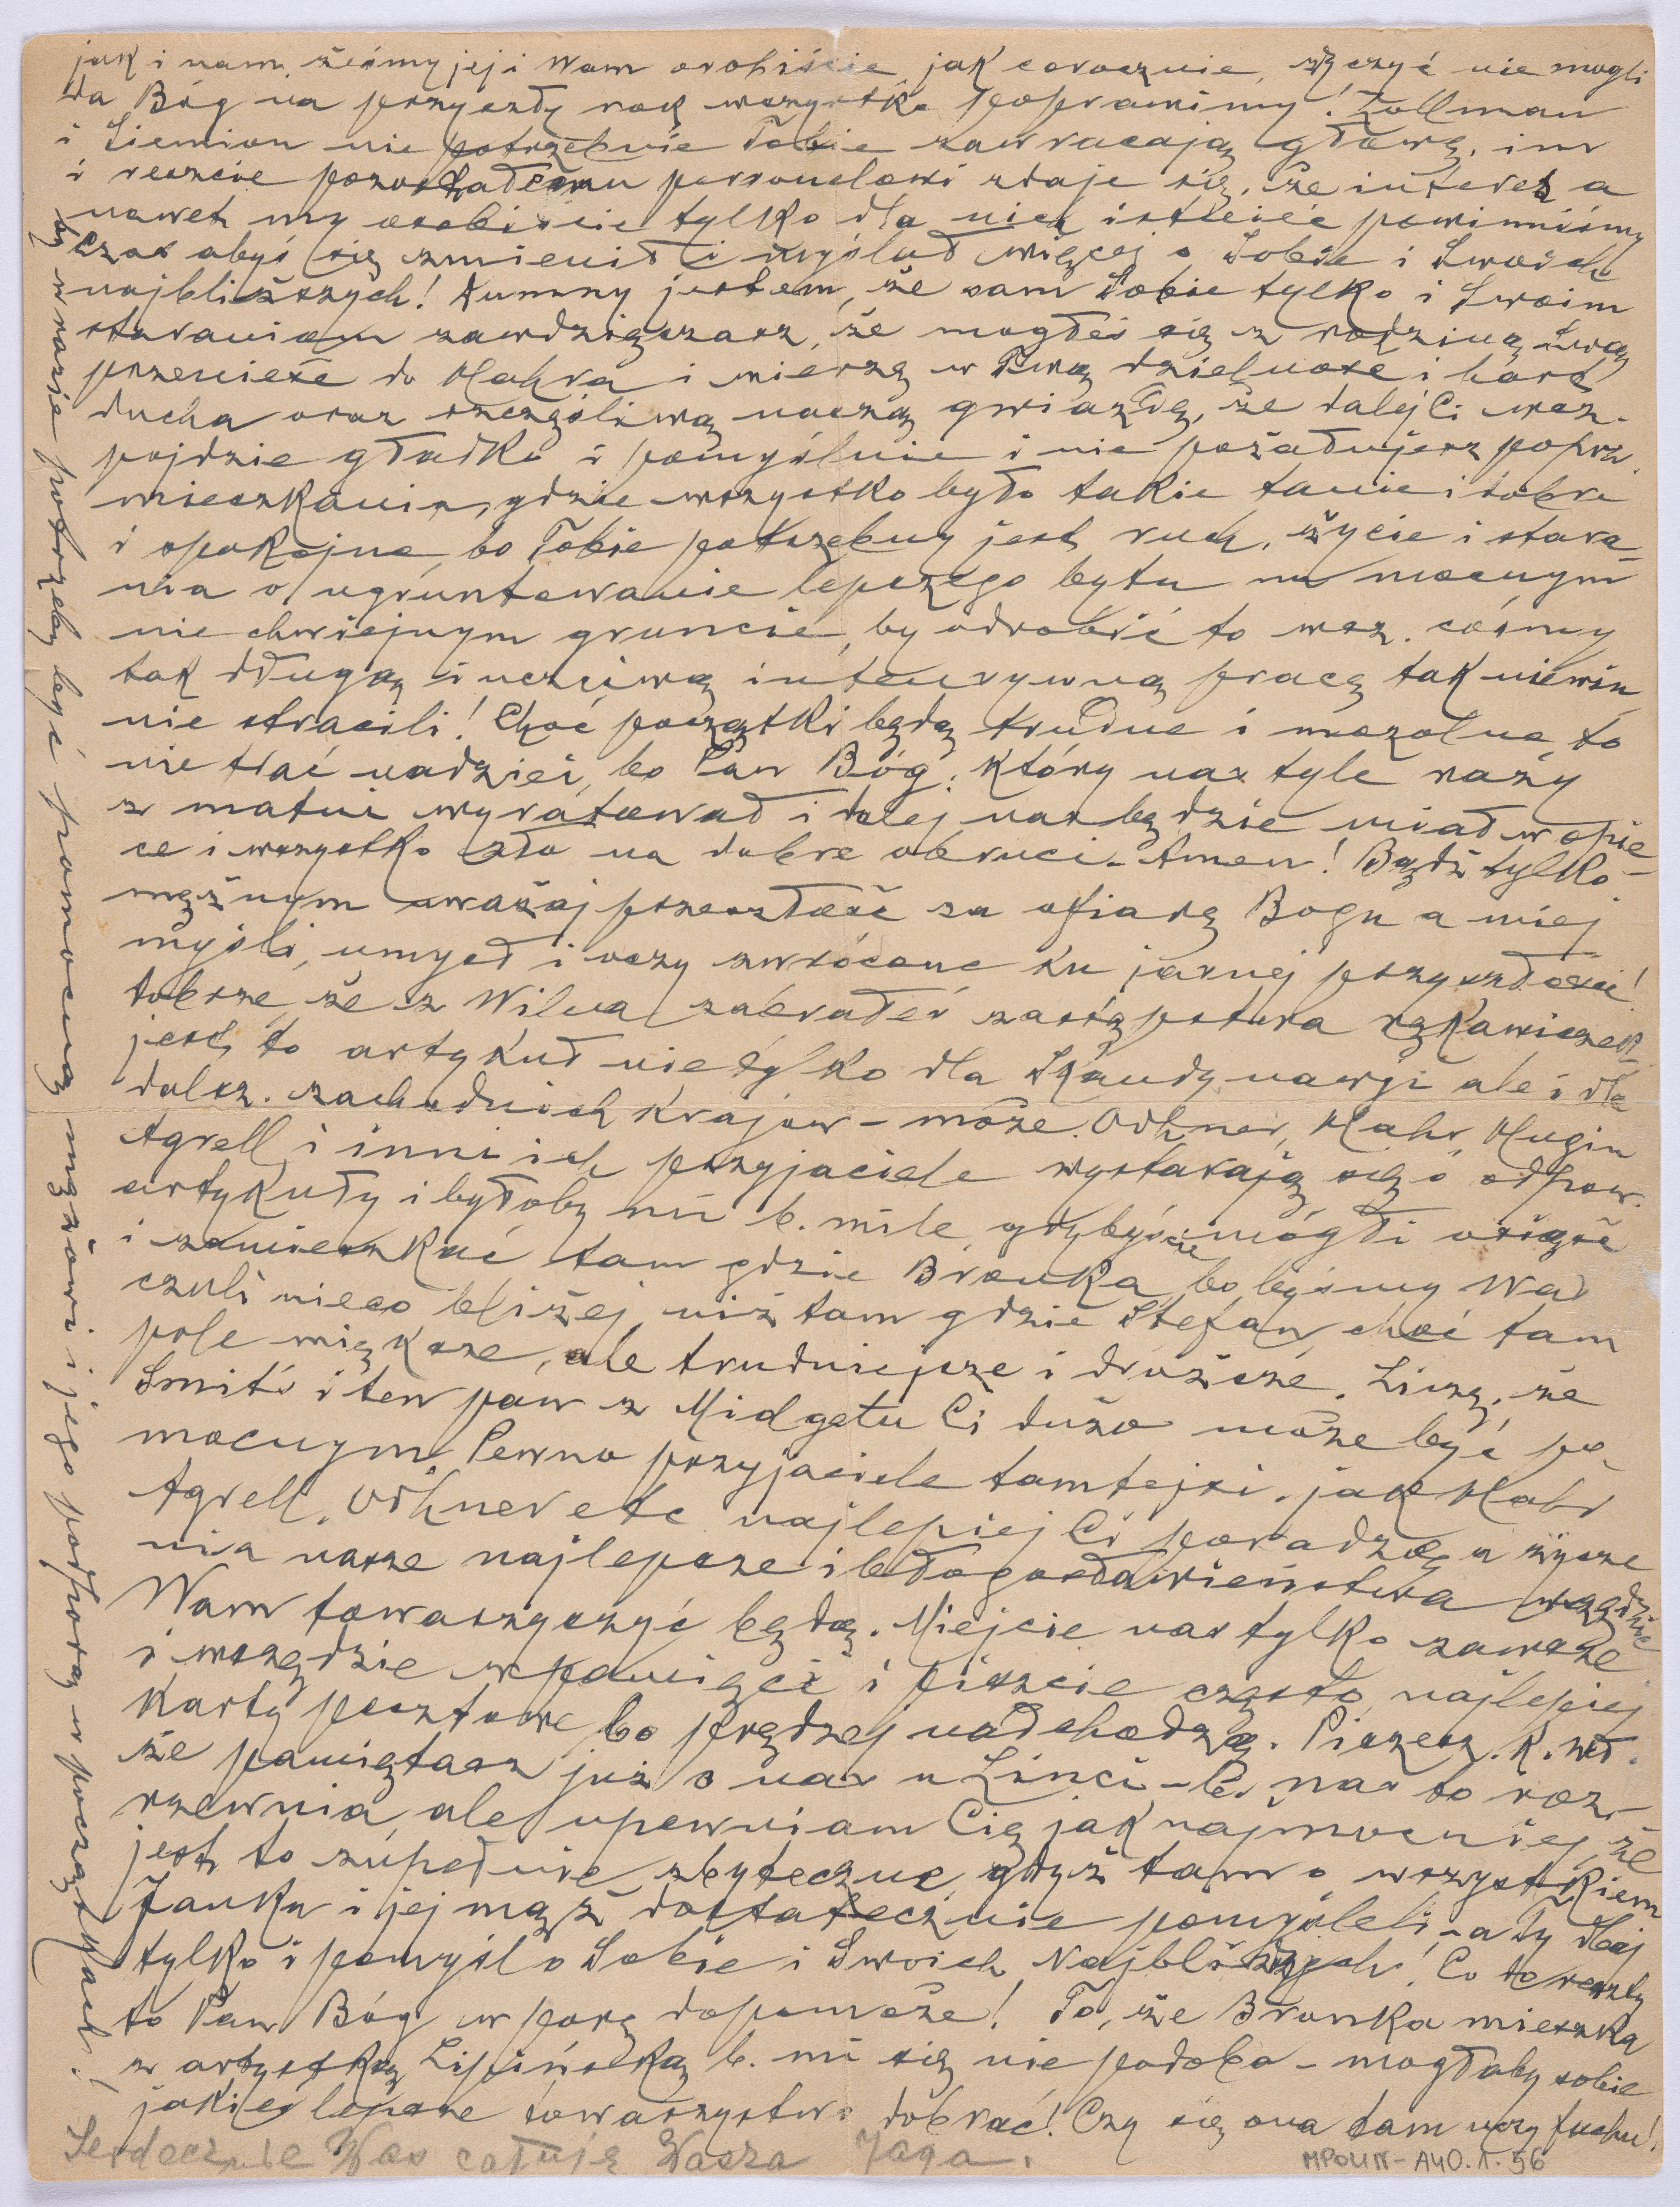 jak i nam, żeśmy jej i Wam osobiście, jak corocznie, życzyć nie mogli
Da Bóg na przyszły rok wszystko poprawimy! Zollman
i Siemion nie potrzebnie Tobie zawracają głowę, im
i reszcie pozostałemu personelowi zdaje się, że interes a
nawet my osobiście tylko dla nich istnieć powinniśmy
Czas abyś się zmienił i myślał więcej o Sobie i Swoich
najbliższych! Dumny jestem, że sam Sobie tylko i Swoim
staraniom zawdzięczasz, że mogłeś się z rodziną swą
przenieść do Mahra i wierzę w Twą dzielność i hart
ducha oraz szczęśliwą naszą gwiazdę, że dalej Ci wsz.
pójdzie gładko i pomyślnie i nie pożałujesz poprz.
mieszkania, gdzie wszystko było takie tanie i dobre
i spokojne, bo Tobie potrzebny jest ruch, życie i stara-
nia o ugruntowanie lepszego bytu na mocnym
nie chwiejnym gruncie, by odrobić to wsz. cośmy
tak długą i uczciwą intensywną pracą tak niewin
nie stracili! Choć początki będą trudne i mozolne, to
nie trać nadziei, bo Pan Bóg, który nas tyle razy
z matni wyratował i dalej nas będzie miał w opie-
ce i wszystko zło na dobre obruci. Amen! Bądź tylko
mężnym uważaj przeszłość za ofiarę Bogu a miej
myśli, umysł i oczy zwrócone ku jasnej przyszłości!
Dobrze, że z Wilna zabrałeś zastępstwa rękawiczek
jest to artykuł nie tylko dla Skandynawji ale i dla
dalsz. zachodnich krajow - może Odhner, Mahr, Hugin
Agrell i inni ich przyjaciele wystarają się o odpow.
artykuły i byłoby mi b. mile, gdybyście mogli osiąść
i zamieszkać tam gdzie Bronka, bo byśmy Was
czuli nieco bliżej niż tam gdzie Stefan, choć tam
pole większe, ale trudniejsze i droższe. Liczę, że
Smits i ten pan z Midgetu Ci dużo może być po-
mocnym. Pewno przyjaciele tamtejsi, jak Mahr
Agrell, Odhner etc najlepiej Ci poradzą, a życze
nia nasze najlepsze i błogosławieństwa wszędzie
Wam towarzyszyć będą. Miejcie nas tylko zawsze
i wszędzie w pamięci i piszcie często, najlepiej
karty pocztowe bo prędzej nadchodzą. Piszesz. K. Wł.
że pamiętasz już o nas u Linci - b. nas to roz-
rzewnia, ale upewniam Cię jak najmocniej, że
jest to zupełnie zbyteczne, gdyż tam o wszystkiem
Janka i jej mąż dostatecznie pomyśleli, - a Ty dbaj
tylko i pomyśl o Sobie i Swoich Najbliższych! Co do reszty
to Pan Bóg w porę dopomoże! To, że Bronka mieszka
z artystką Lipińską b. mi się nie podoba - mogłaby sobie
jakieś lepsze towarzystwo dobrać! Czy się ona tam uczy fachu!
Serdecznie Was całuję Wasza Jaga.
by w razie potrzeby być pomocną mężowi i jego podporą w początkach!
MPOLIN-A40.1.56